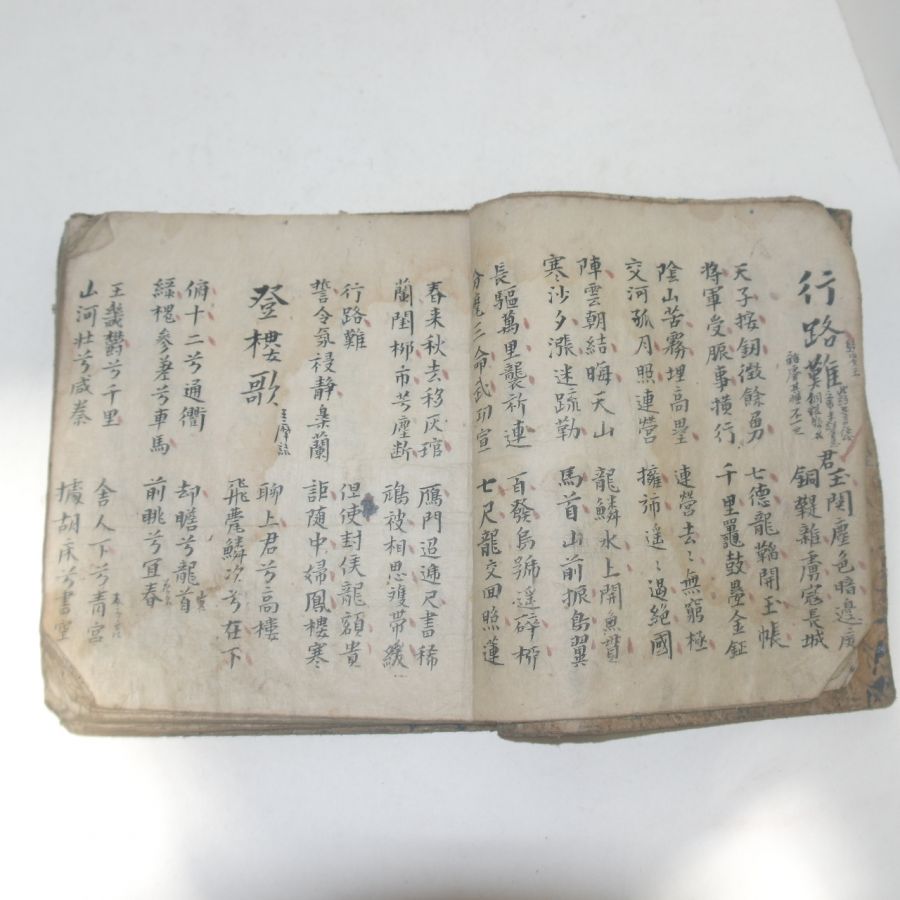 行路難
君玉関塵色暗邊庭
銅鞮雜虜寇長城
天子按釼徵餘勇
將軍受脤事橫行
七德龍韜開玉帳
千里鼉鼓疊金鉦
陰山苦霧埋高壘
交河孤月照連營
連營去〻無窮極
擁斾遙〻過絕國
陣雲朝結晦天山
寒沙夕漲迷疏勒
龍鱗水上開魚貫
馬首山前振島翼
長驅萬里襲祈連
分麾三命武功宣
百發烏號遥碎柳
七尺龍文回照蓮
春来秋去移灰琯
蘭閨柳市芳塵断
鴈門迢逓尺書稀
鴻被相思雙帶緩
行路難
誓令氛祲静臯蘭
但使封侯龍額貴
詎随中婦鳳樓寒
登樓歌
王摩詰
聊上君兮高樓
飛甍鱗次兮在下
俯十二兮通衢
綠槐參差兮車馬
却瞻兮龍首
前眺兮宜春
王畿欝兮千里
山河壮兮咸秦
舍人下兮青宮
據胡床兮書空